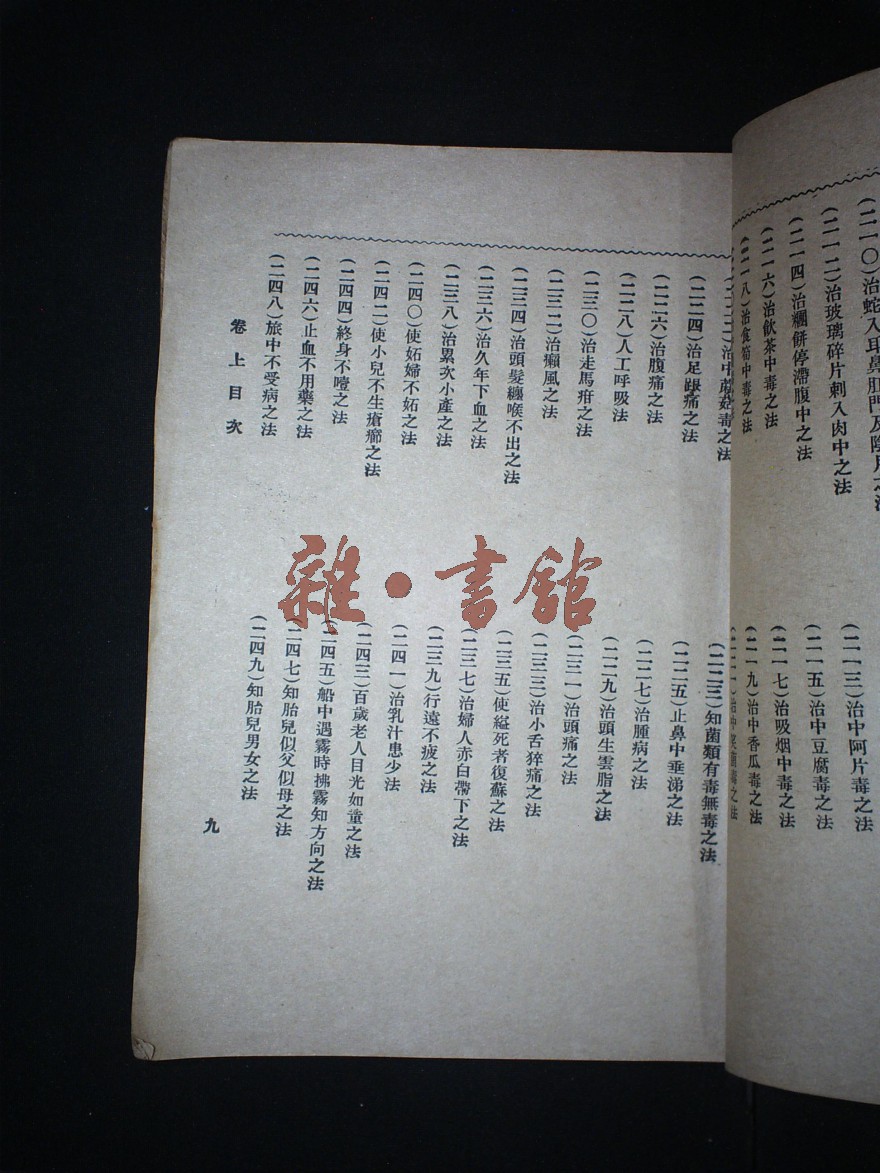 (二一〇)治蛇入耳鼻肛門及陰戶之法
(二一二)治玻璃碎片刺入肉中之法
(二一四)治糰餅停滯腹中之法
(二一六)治飲茶中毒之法
(二一八)治食筍中毒之法
(二一三)治中阿片毒之法
(二一五)治中豆腐毒之法
(二一七)治吸烟中毒之法
(二一九)治中香瓜毒之法
(二二二)治中蔴菇毒之法
(二二四)治足跟痛之法
(二二六)治腹痛之法
(二二八)人工呼吸法
(二三〇)治走馬疳之法
(二三二)治癩風之法
(二三四)治頭髮纏喉不出之法
(二三六)治久年下血之法
(二三八)治累次小產之法
(二四〇)使妬婦不妬之法
(二四二)使小兒不生瘡癤之法
(二四四)終身不噎之法
(二四六)止血不用藥之法
(二四八)旅中不受病之法
(二二三)知菌類有毒無毒之法
(二二五)止鼻中垂涕之法
(二二七)治腫病之法
(二二九)治頭生雲脂之法
(二三一)治頭痛之法
(二三三)治小舌猝痛之法
(二三五)使縊死者復蘇之法
(二三七)治婦人赤白帶下之法
(二三九)行遠不疲之法
(二四一)治乳汁患少法
(二四三)百歲老人目光如童之法
(二四五)船中遇霧時拂霧知方向之法
(二四七)知胎兒似父似母之法
(二四九)知胎兒男女之法
卷上目次
九
雜·書館